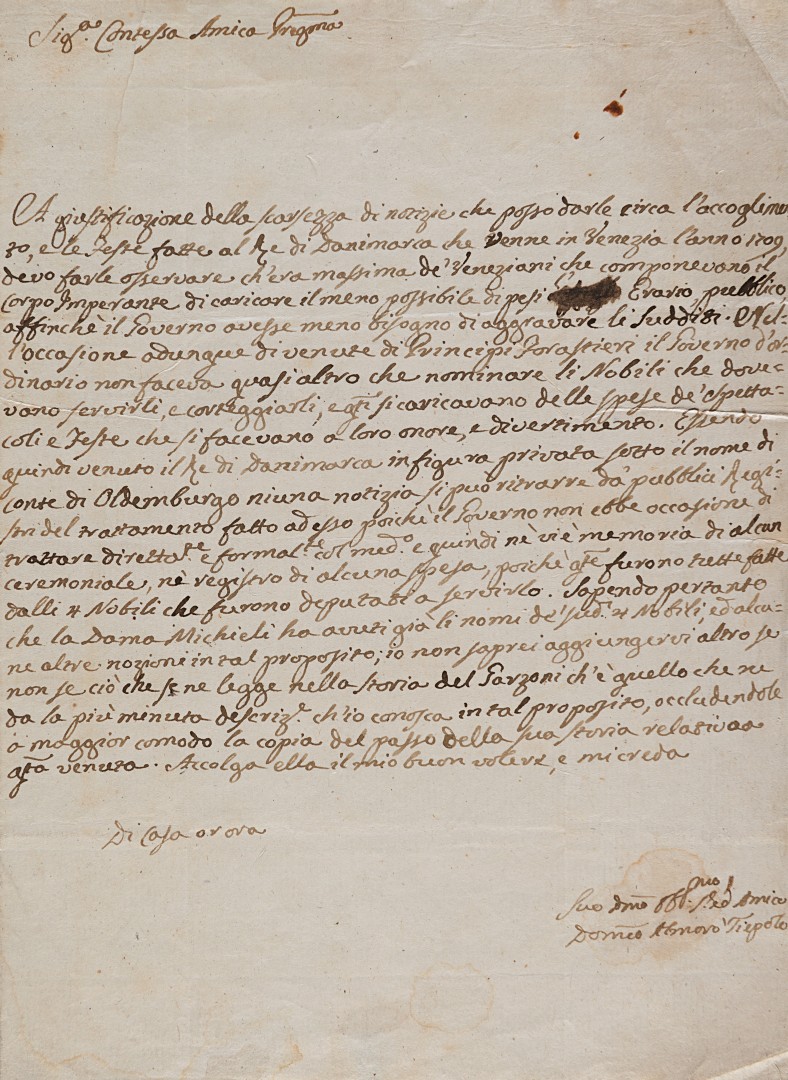 Sig.ª Contessa Amica Pregma
A giustificazione della scarsezza di notizie che posso darle circa l'accoglimen
to, e le Feste fatte al Re di Danimarca che venne in Venezia l'anno 1709,
devo farle osservare ch'era massima de' Veneziani che componevano il
Corpo Imperante di caricare il meno possibile di pesi Erario pubblico,
affinchè il Governo avesse meno bisogno di aggravare li sudditi. Nel-
l'occasione adunque di venute di Principi Forastieri il Governo d'or-
dinario non faceva quasi altro che nominare li Nobili che dove-
vano servirli, e corteggiarli, e qti si caricavano delle spese de' Spetta-
coli e Feste che si facevano a loro onore, e divertimento. Essendo
quindi venuto il Re di Danimarca in figura privata sotto il nome di
Conte di Oldemburgo niuna notizia si può ritrarre da' pubblici Regi-
stri del trattamento fatto ad esso poichè il Governo non ebbe occasione di
trattare diretta.te e formal.te col med.o e quindi nè vi è memoria di alcun
ceremoniale, nè registro di alcuna spesa, poichè qte furono tutte fatte
dalli 4 Nobili che furono deputati a servirlo. Sapendo pertanto
che la Dama Michieli ha avuti già li nomi de' sud.i 4 Nobili, ed alcu-
ne altre nozioni in tal proposito, io non saprei aggiungervi altro se
non se ciò che se ne legge nella storia del Garzoni ch'è quello che ne
dà la più minuta descriz.e ch'io conosca in tal proposito, occludendole
a maggior comodo la copia del passo della sua storia relativa a
qta venuta. Accolga ella il mio buon volere, e mi creda
Di Casa or ora
Suo Dmo Obb.mo S.e ed Amico
Domco Almorò Tiepolo